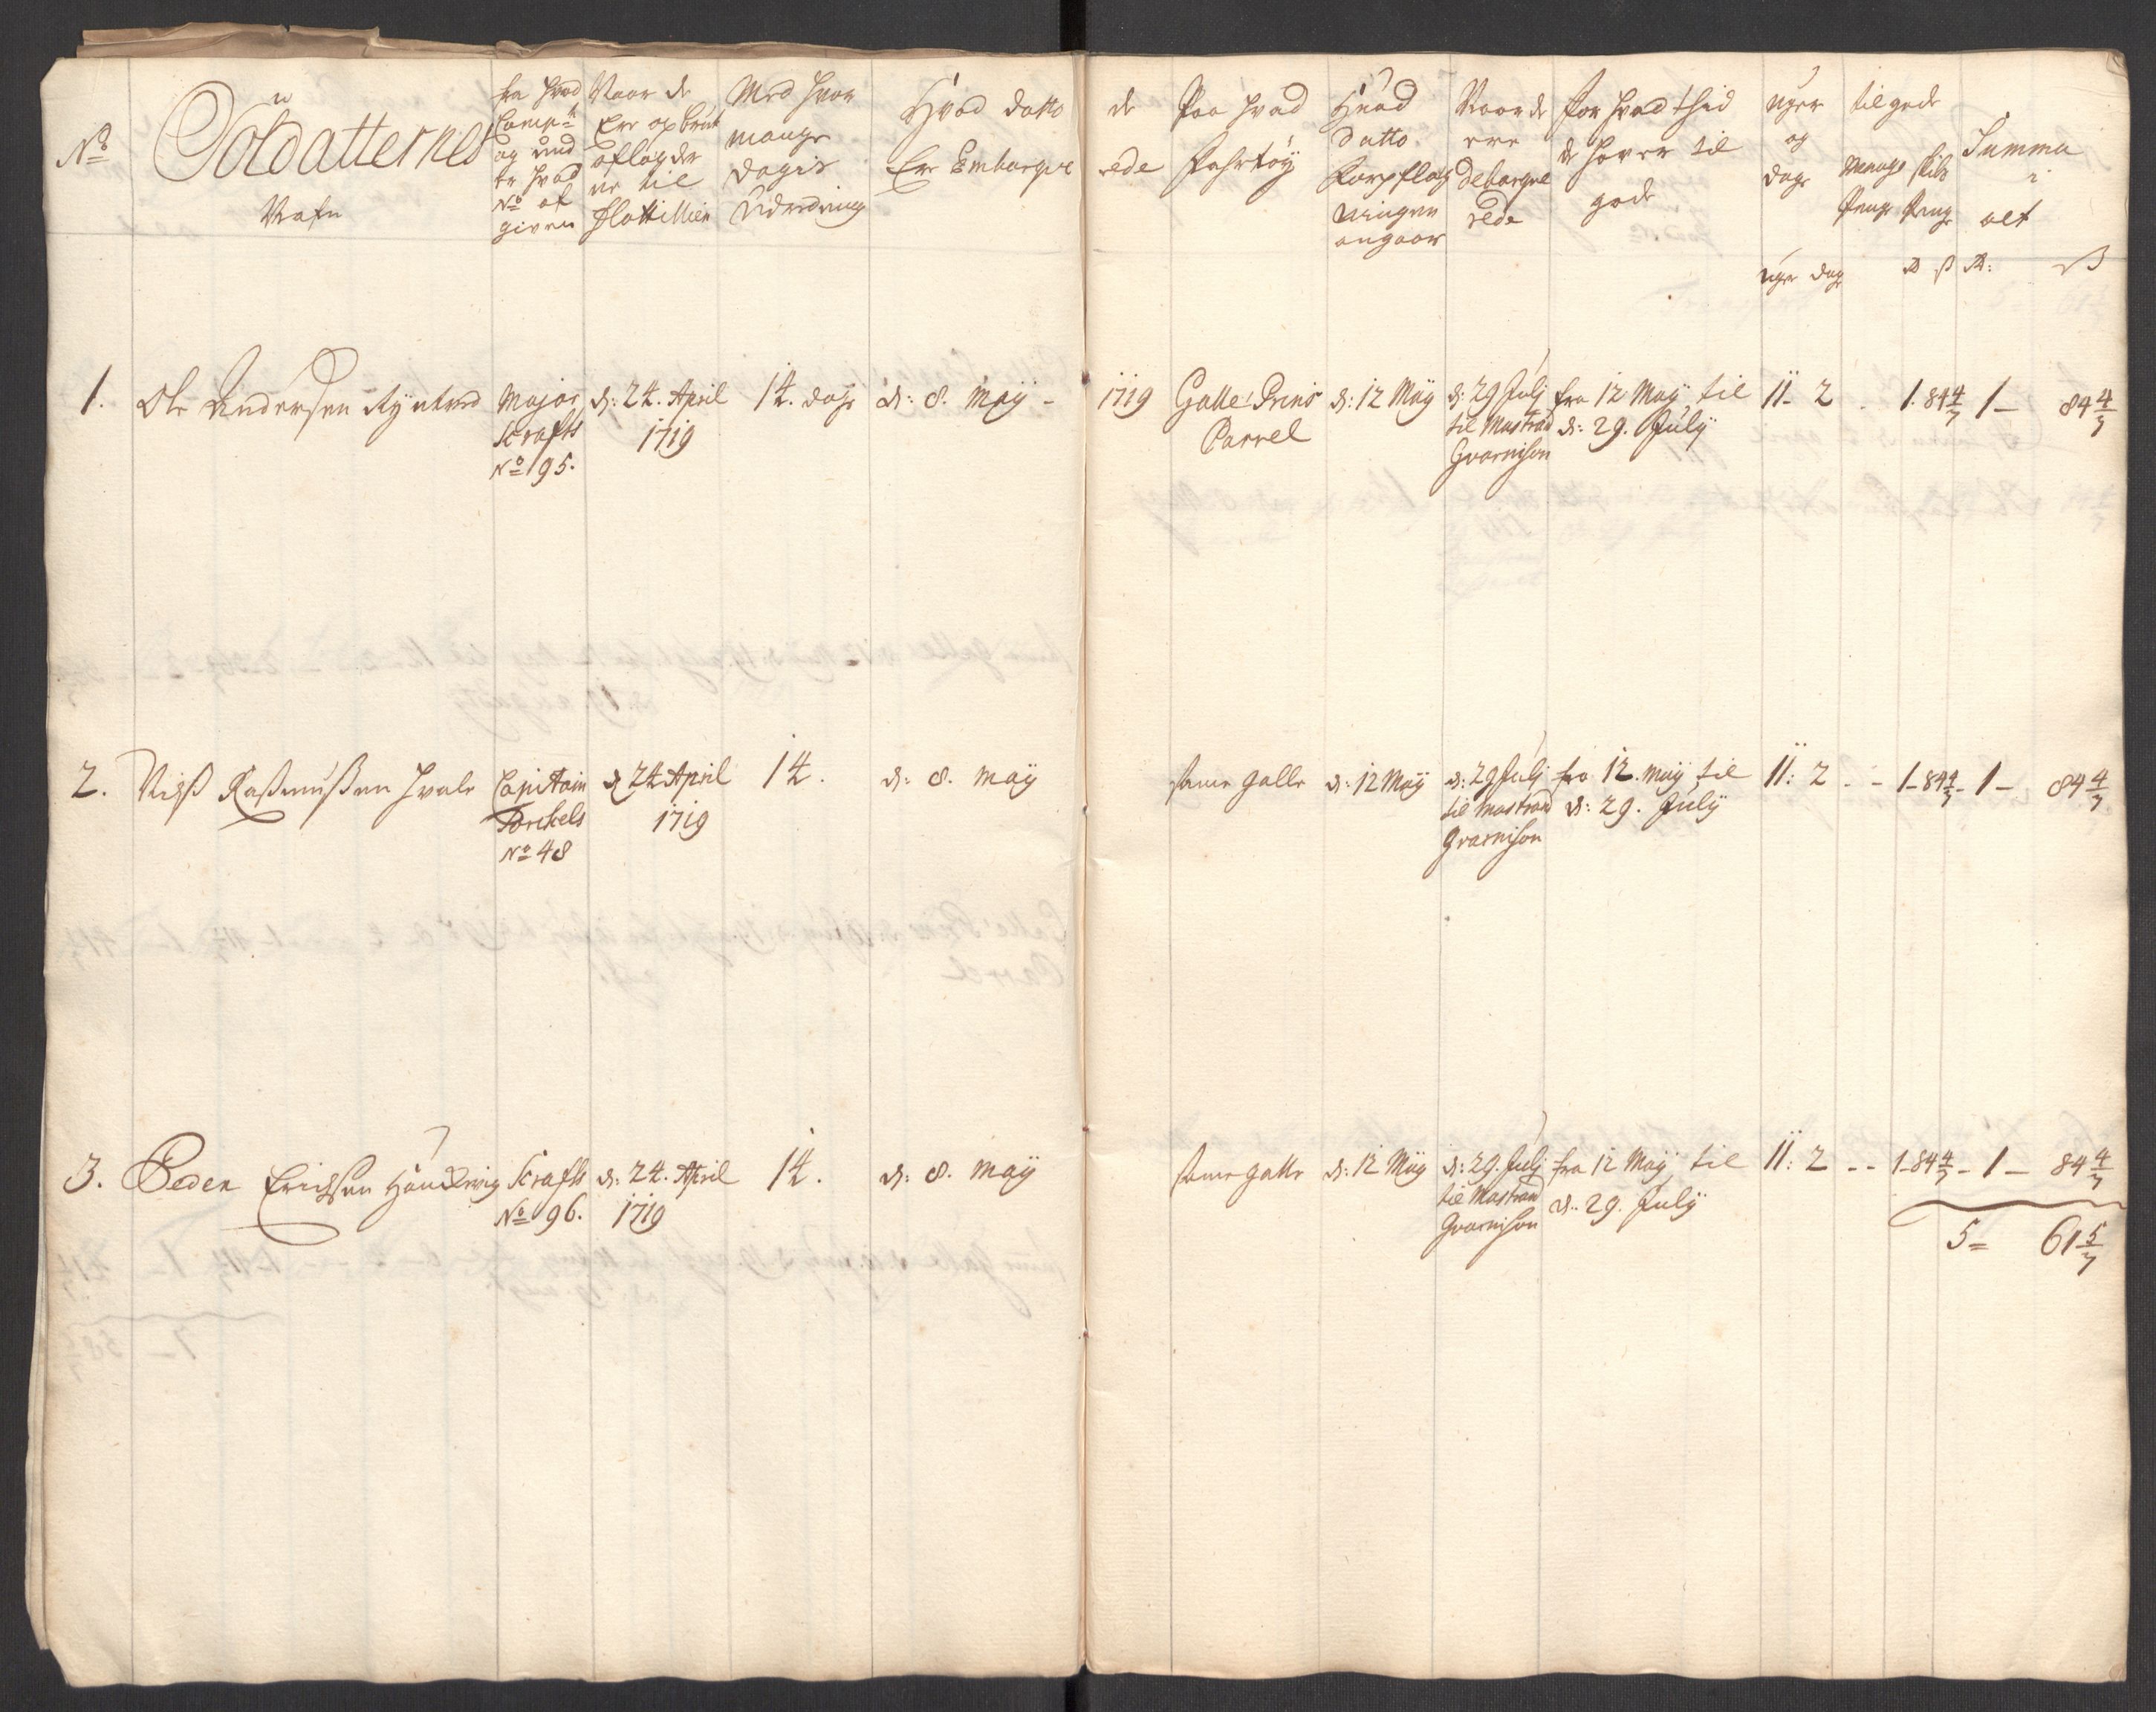 No
Soldatternes
Nafn
fra hvad
Comp:
og und
er hvad
No af
given
Naar de
Ere opbrút
aflagde
ne til
Flottillien
Med hvor
mange
dagis
Hvad datto
Ere Embarqve
de
rede
Paa hvad
Fahrtøÿ
Hvad
datto
Forpfleg
ningen
angaar
Naar de
ere
debarqve
rede
For hvad thid
de haver til
gode
uger
og
dage
til gode
Penge Penge
Summa
i
alt
uger dage
ß
ß
1. Ole Andersen
Major
Krafts
No 95.
d: 24. April
1719
14. dage
d: 8. maÿ -
1719
Galle Prins
Carrel
d: 12 Maÿ
d: 29 Julj
til Mastrand
Gvarnison
fra 12 Maÿ til
d: 29. Julÿ
11- 2
1. 84 4/7
1 - 84 4/7
2. Niels Rasmusen
Capitain
No 48
d 24 April
1719
14.
d: 8. maÿ
same galle
d: 12 Maÿ
d: 29 Julj
til Mastrand
Gvarnison
fra 12. maÿ til
d: 29. Julÿ
11: 2 - -
1 - 84 4/7 -
1 - 84 4/7
3. Peder Erichsen
Krafts
No 96.
d: 24. April
1719
14.
d: 8. maÿ
same galle
d: 12 Maÿ
d: 29. Julj
til Mastrand
Gvarnison
fra 12 Maÿ til
d: 29. Julÿ
11: 2 - -
1 - 84 4/7 -
1 - 84 4/7
5 = 61 5/7